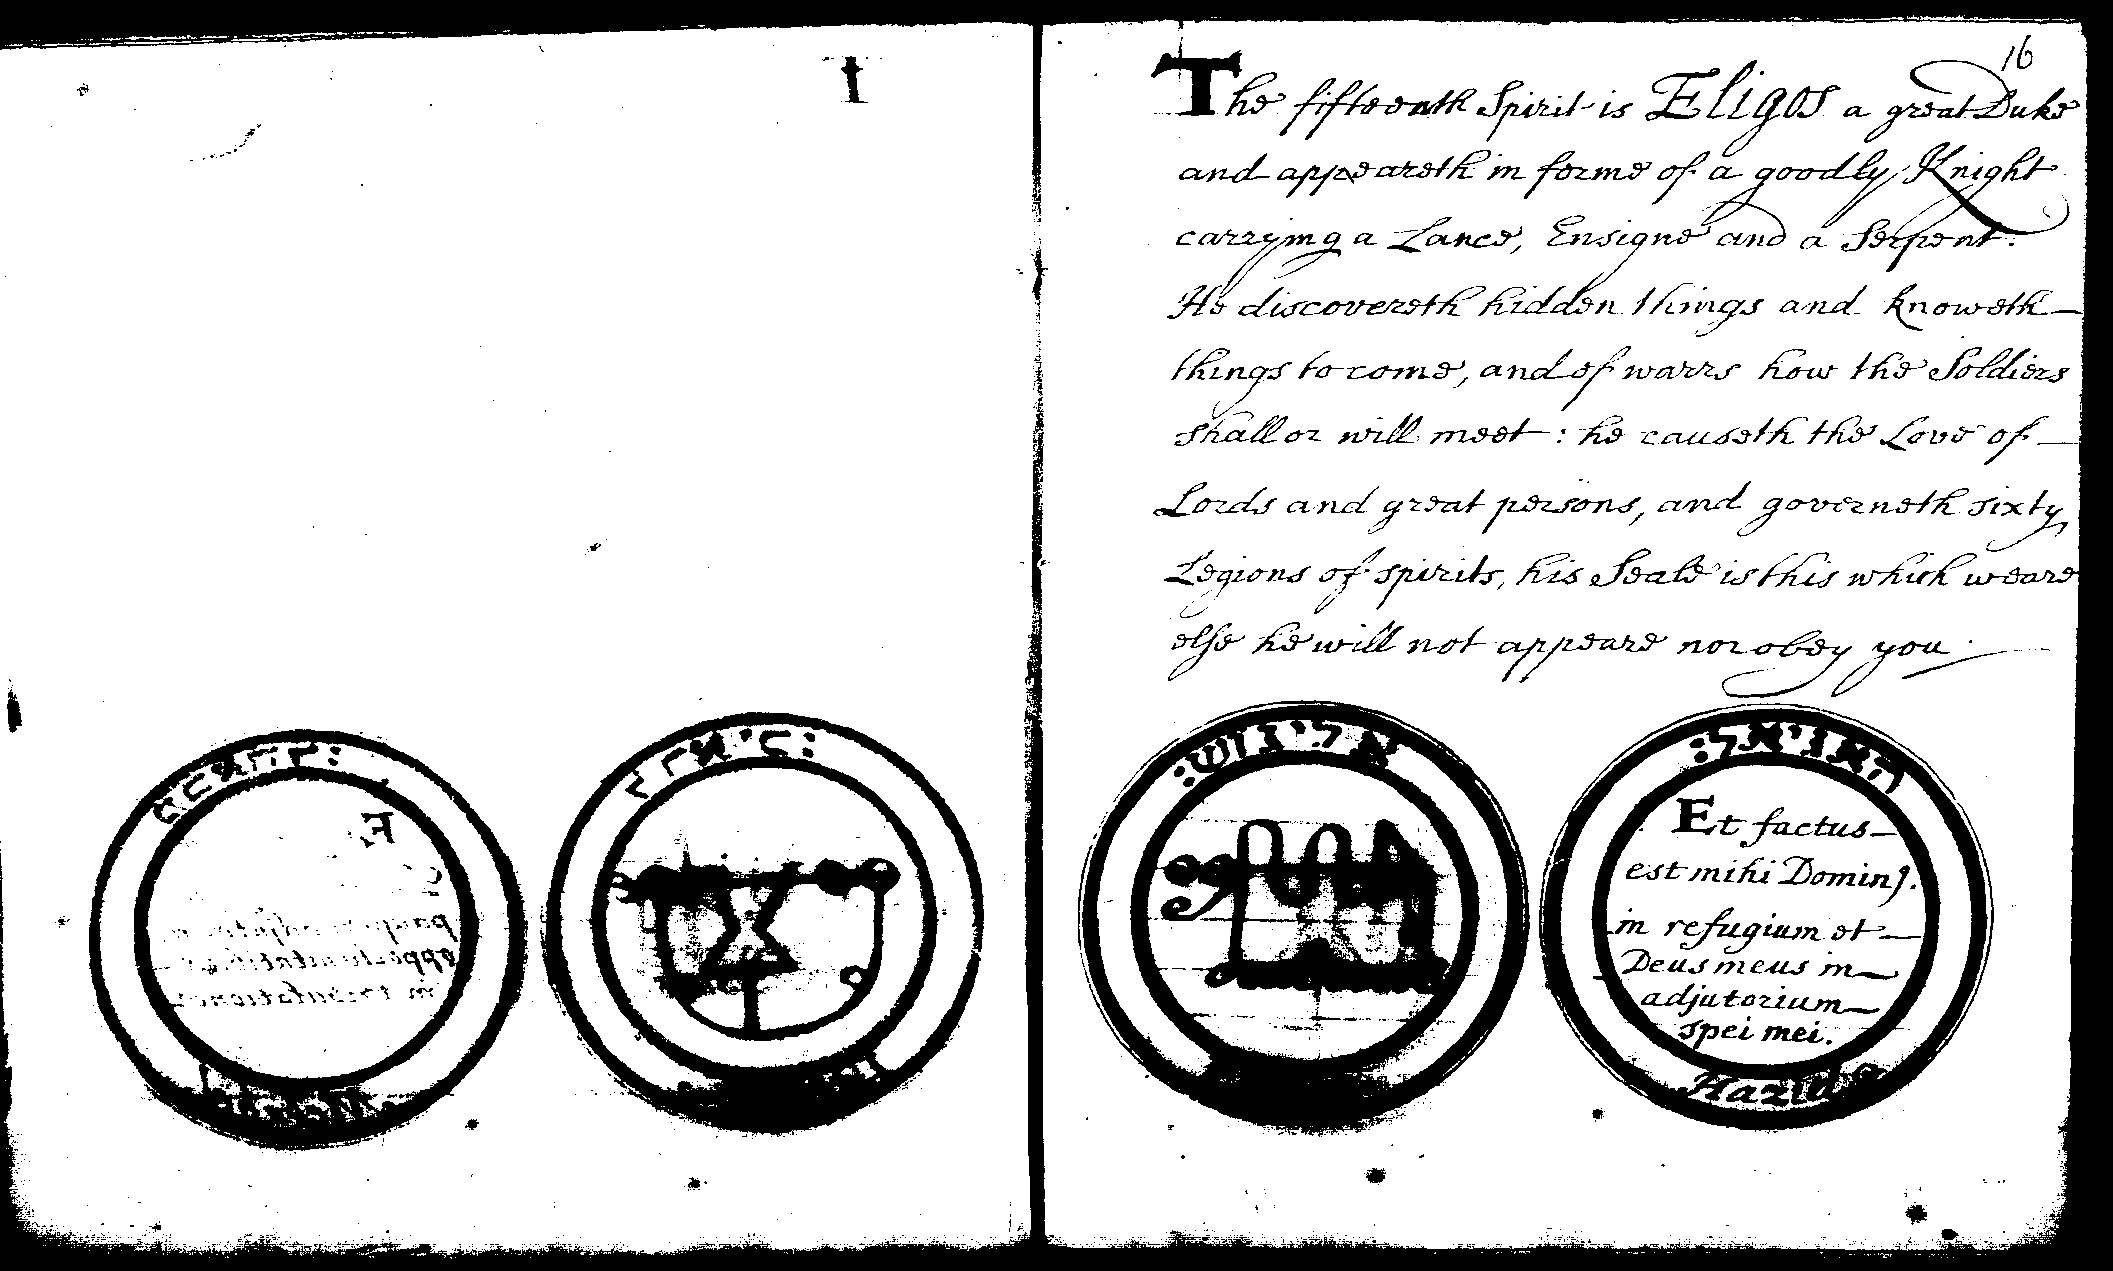 16
The fifteenth Spirit is Eligos a great Duke
and appeareth in forme of a goodly Knight
carrying a Lance, Ensigne and a Serpent:
He discovereth hidden things and knoweth
things to come, and of warrs how the Soldiers
shall or will meet: he causeth the Love of
Lords and great persons, and governeth sixty
Legions of spirits, his Seale is this which weare
else he will not appeare nor obey you.
אליגוש:
האניאל:
Et factus
est mihi Domin9.
in refugium et
Deus meus in
adjutorium
spei mei.